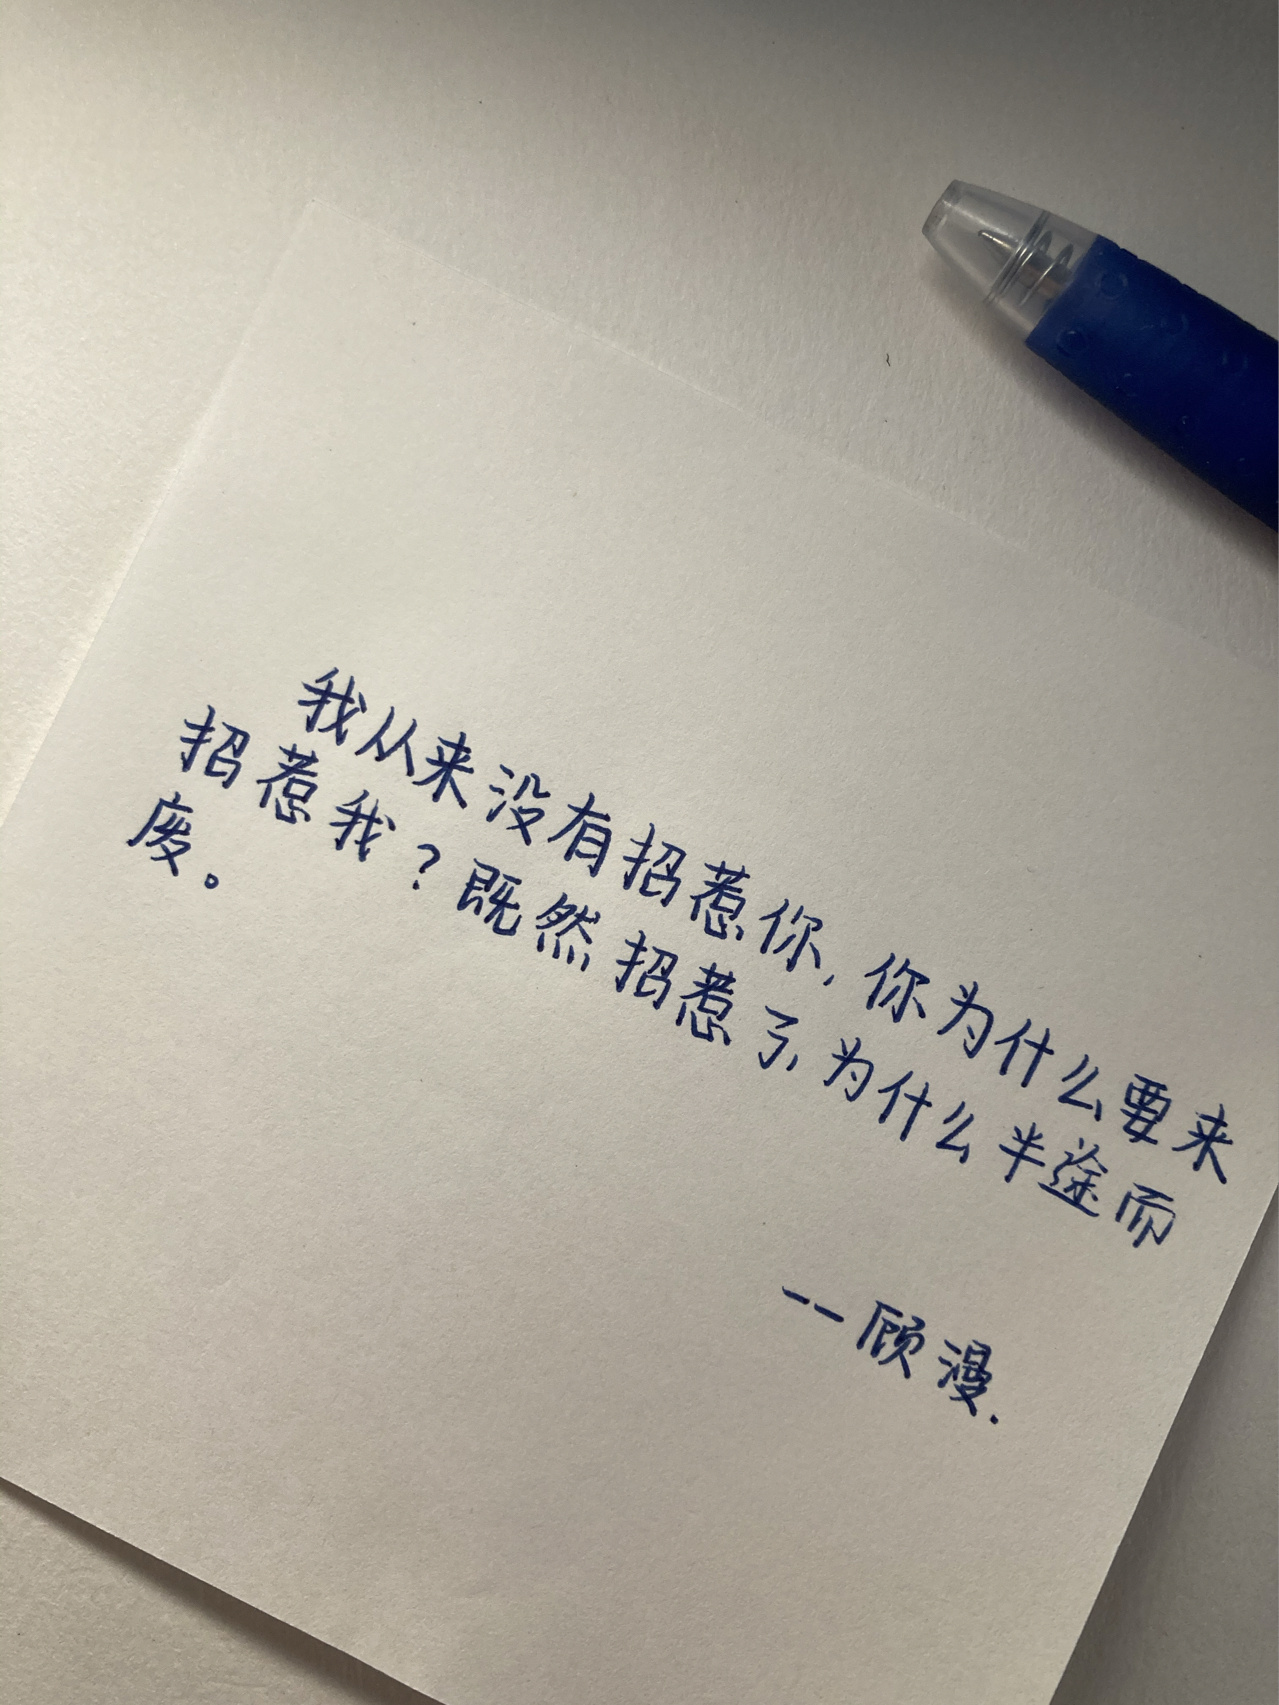 我从来没有招惹你,你为什么要来
招惹我?既然招惹了,为什么半途而
废。
--顾漫.